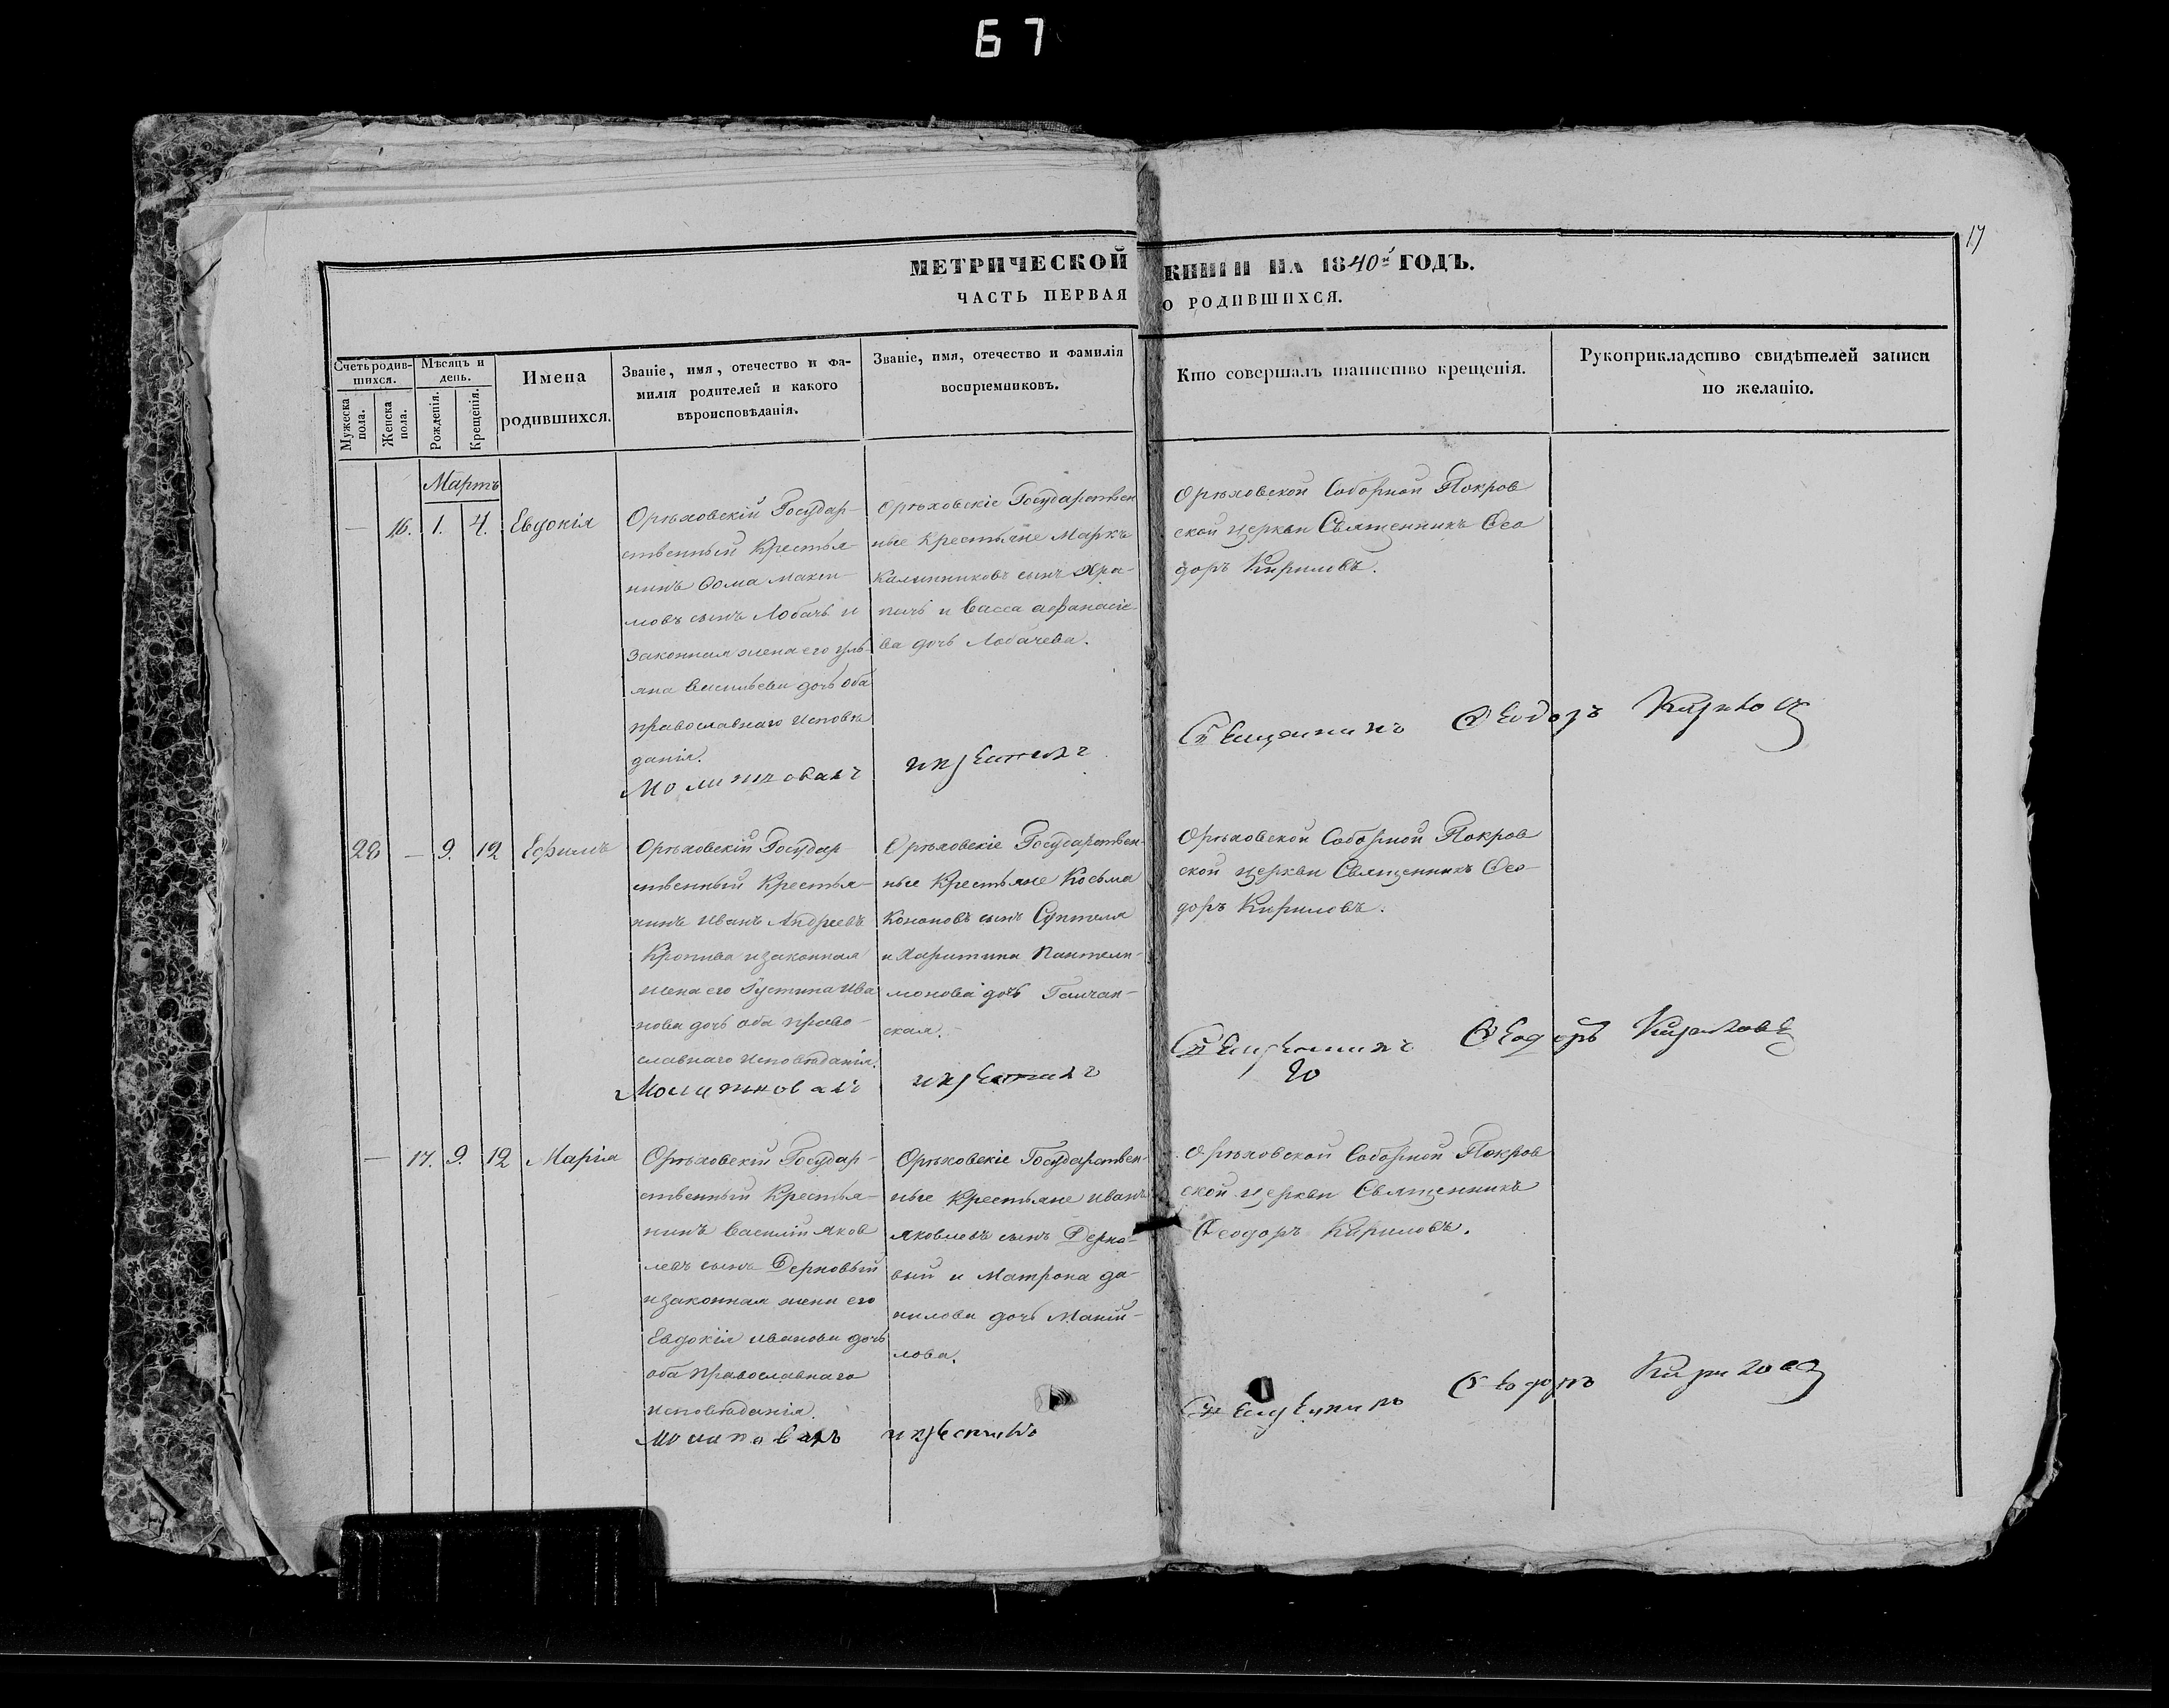 67
17
МЕТРИЧЕСКОЙ КНИГИ НА 1840й ГОДЪ.
ЧАСТЬ ПЕРВАЯ О РОДИВШИХСЯ.
Счетъ родив-
шихся.
Мужеска
пола.
Женска
пола.
Мѣсяцъ и
день.
Рожденія.
Крещенія.
Имена
родившихся.
Званіе, имя, отечество и фа-
милія родителей и какого
вѣроисповѣданія.
Званіе, имя, отечество и фамилія
воспріемниковъ.
Кто совершалъ таинство крещенія.
Рукоприкладство свидѣтелей записи
по желанію.
Мартъ
— 16. 1. 4. Евдокія
Орѣховскій Государ-
ственный Крестья-
нинъ Фома Макси-
мовъ сынъ Лобачь и
законная жена его Уль-
яна Васильева дочь оба
православнаго исповѣ
данія.
Орѣховскіе Государствен
ные Крестьяне Маркъ
Калинниковъ сынъ Хра-
пачь и Васса Афанасіе
ва дочь Лобачева.
Орѣховской Соборной Покров
ской церкви Священникъ Фео
доръ Кириловъ.
Молитвовалъ и крестилъ Священникъ Феодоръ Кириловъ
28 — 9. 12 Ефимъ
Орѣховскій Государ
ственный Крестья-
нинъ Иванъ Андреевъ
Кропива и законная
жена его Іустина Ива
нова дочь оба право-
славнаго исповѣданія.
Орѣховскіе Государствен-
ные Крестьяне Косьма
Кононовъ сынъ Суптеля
и Харитина Пантели-
монова дочь Галчан-
ская.
Орѣховской Соборной Покров
ской церкви Священникъ Фео-
доръ Кириловъ.
Молитвовалъ и крестилъ Священникъ Феодоръ Кириловъ
— 17. 9. 12 Марія
Орѣховскій Государ-
ственный Крестья-
нинъ Василій Яков
левъ сынъ Дерновый
и законная жена его
Евдокія Иванова дочь
оба православнаго
исповѣданія.
Орѣховскіе Государствен-
ные Крестьяне Иванъ
Яковлевъ сынъ Дерно-
вый и Матрона Да-
нилова дочь Маній-
лова.
Орѣховской Соборной Покров
ской церкви Священникъ
Феодоръ Кириловъ.
Молитвовалъ и крестилъ Священникъ Феодоръ Кириловъ